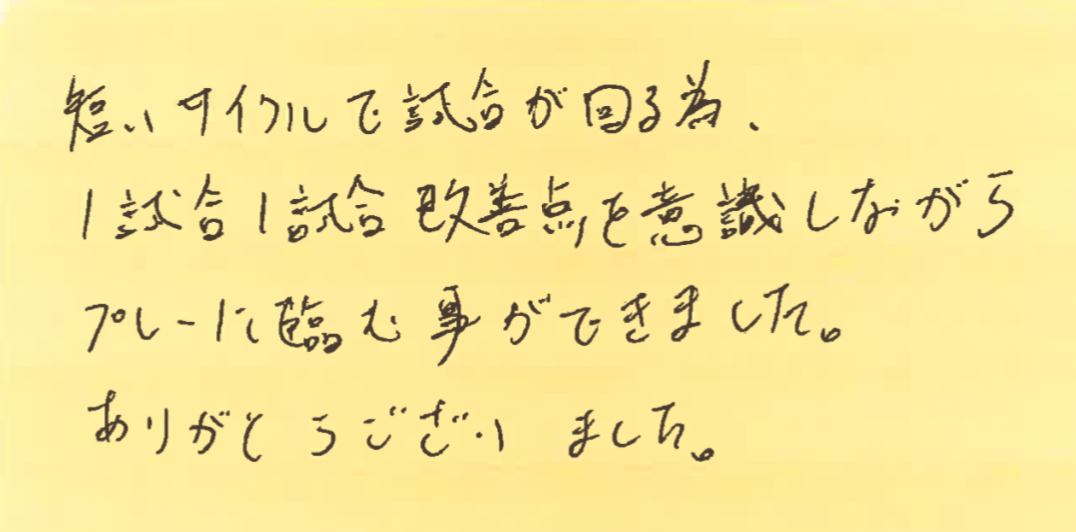 短いサイクルで試合が回る為、
1試合1試合改善点を意識しながら
プレーに臨む事ができました。
ありがとうございました。